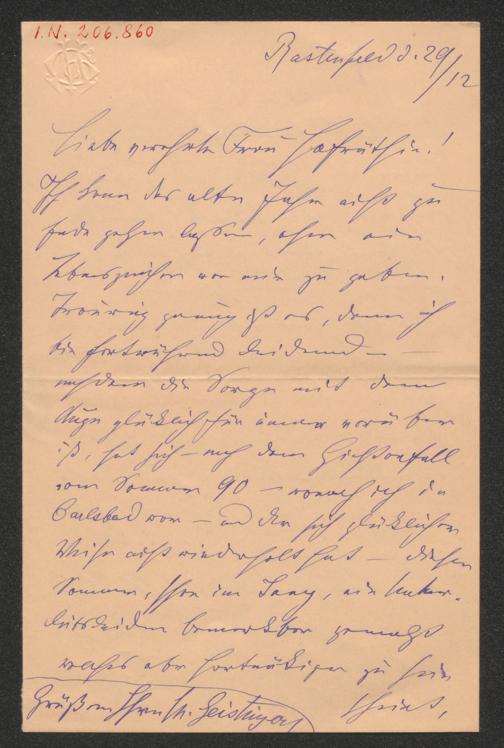 I.N. 206.860
Rastenfeld d. 29/12
Liebe verehrte Frau Hofräthin!
Ich kann das alte Jahr nicht zu
Ende gehen lassen, ohne ein
Lebenszeichen von mir zu geben.
Traurig genug ist es, denn ich
bin fortwährend leidend –
nachdem die Sorge mit dem
Auge glücklich für immer vorüber
ist, hat sich – nach dem Gichtanfall
vom Sommer 90 – wonach ich in
Carlsbad war – und der sich glücklicher
Weise nicht wiederholt hat – diesen
Sommer, schon im Juny, ein Unter-
leibsleiden bemerkbar gemacht
welches aber hartnäckiger zu sein
scheint,
Grüße an Ihren
Geistinger